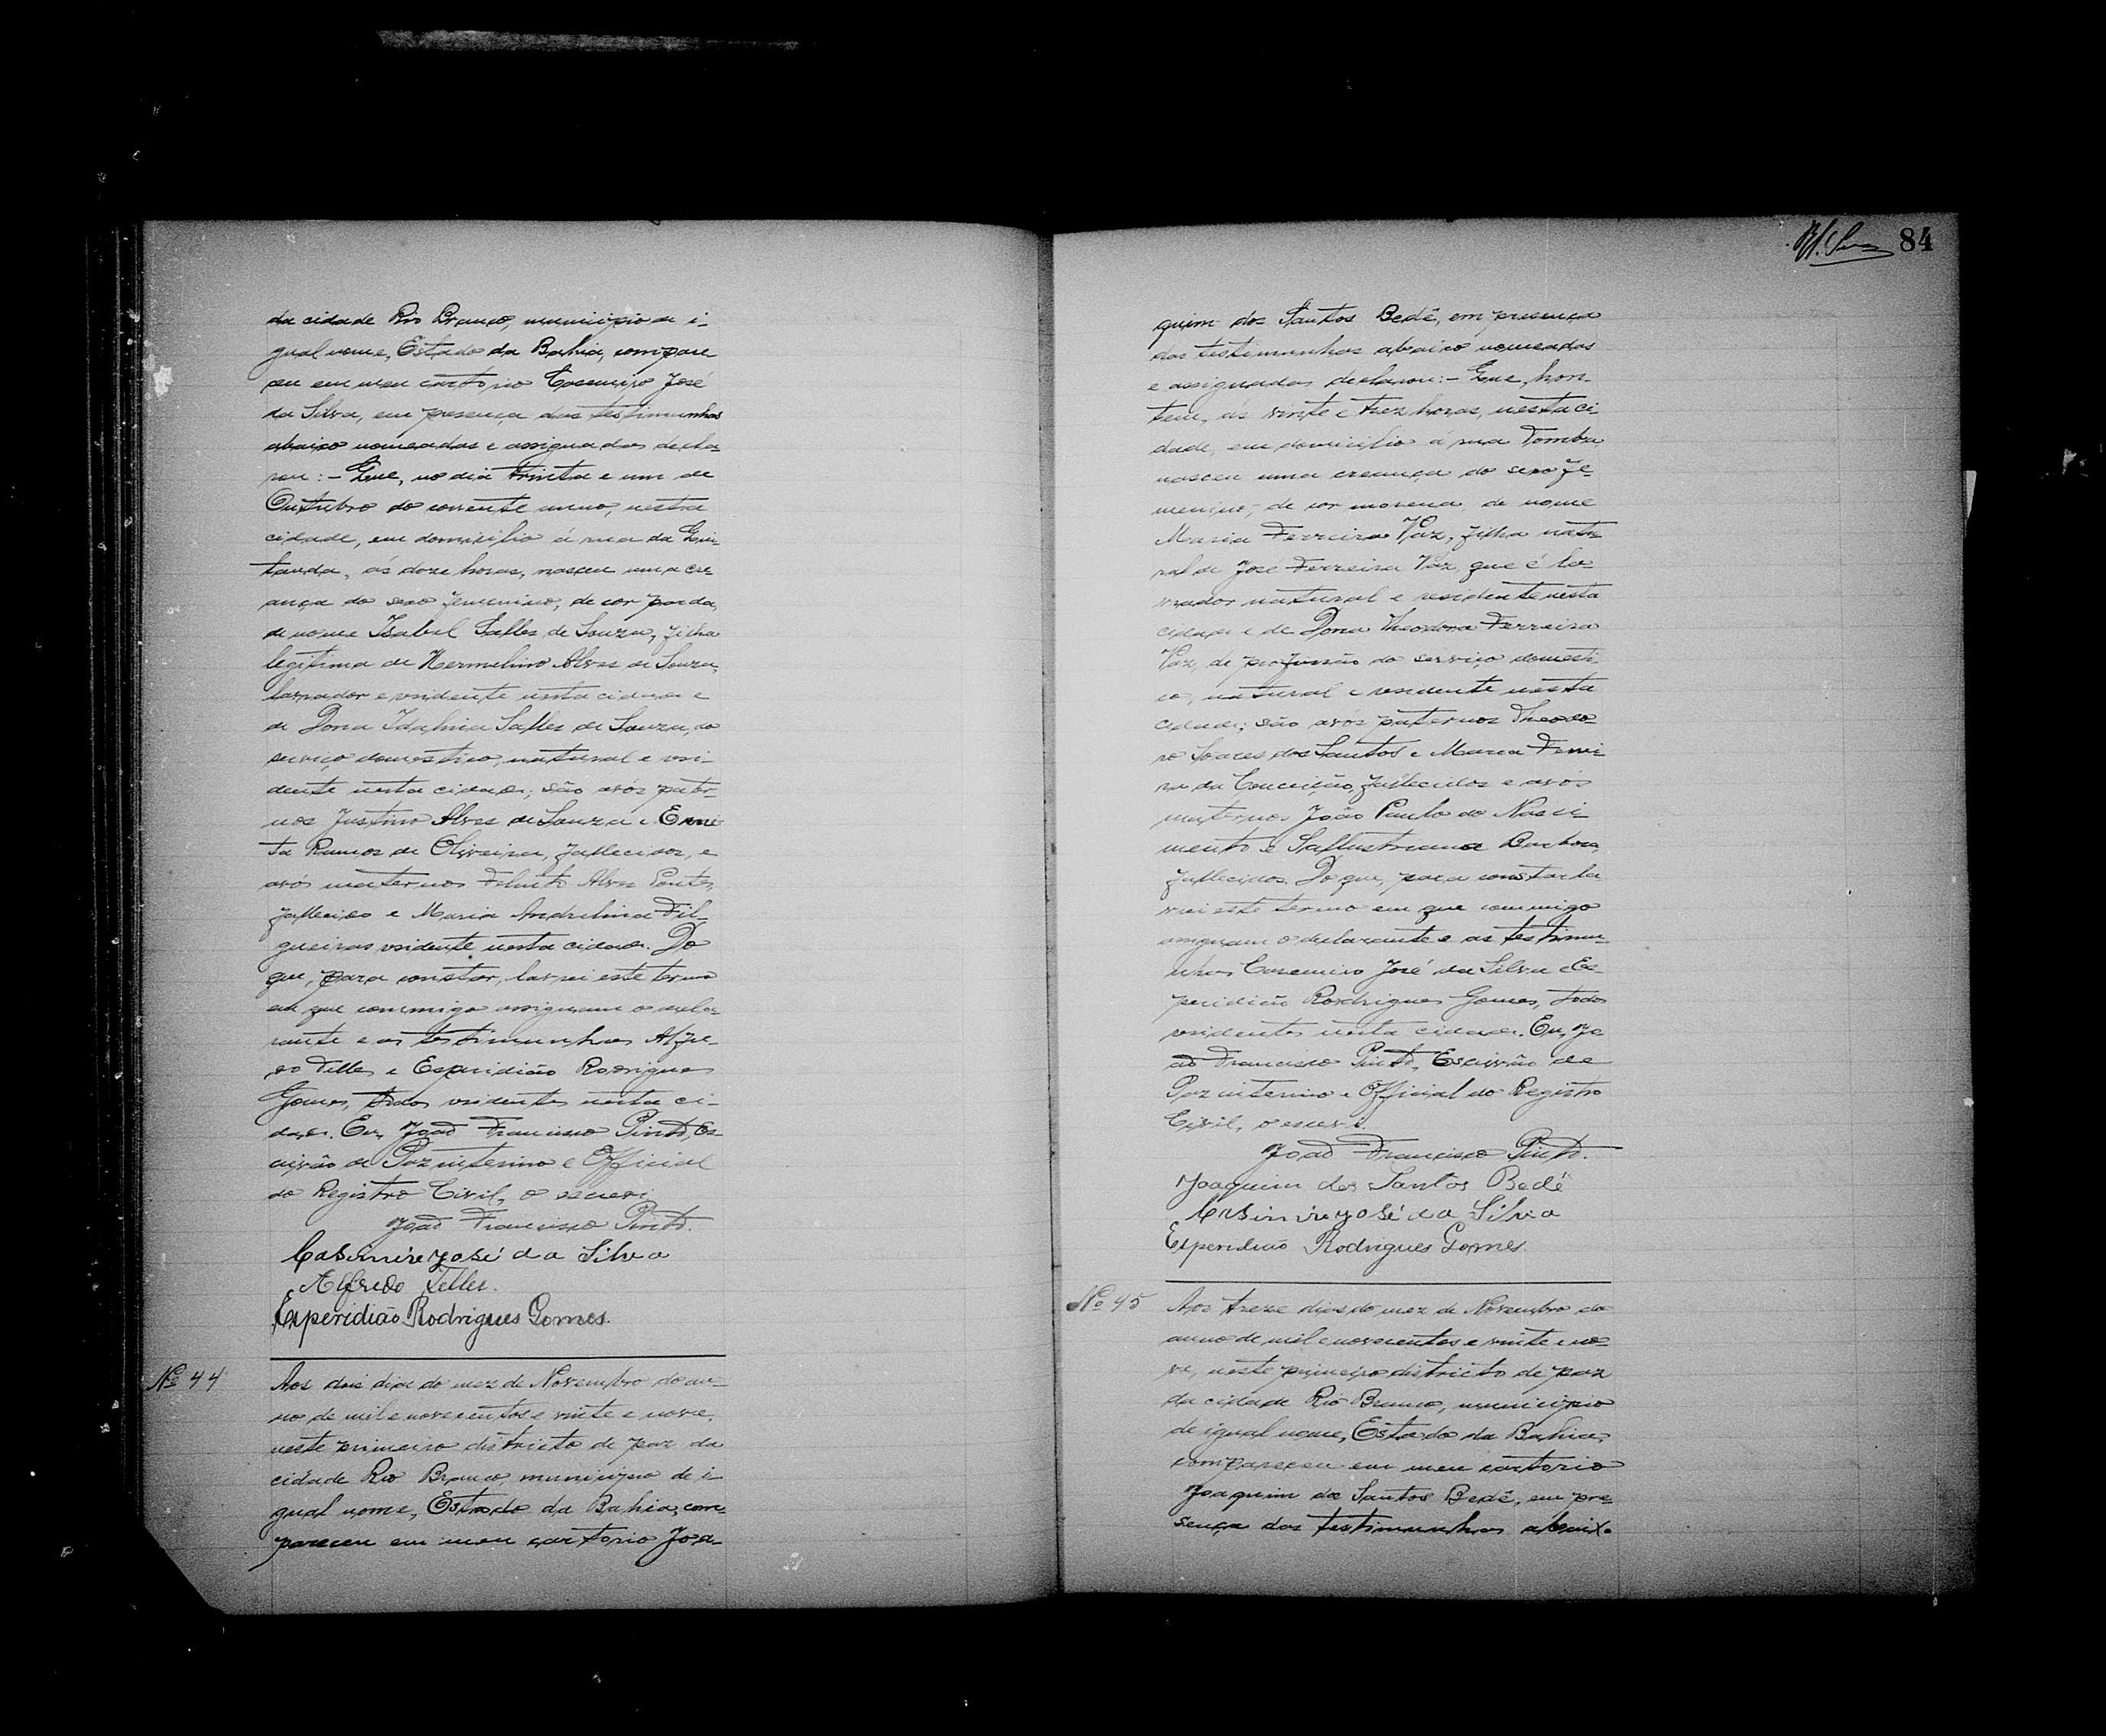 da cidade Rio Branco, municipio de i-
gual nome, Estado da Bahia, compare
ceu em meu cartorio Casemiro José
da Silva, em presença das testimunhas
abaixo nomeadas e assignadas decla-
rou: - Que, no dia trinta e um de
Outubro do corrente anno, nesta
cidade, em domicilio á rua da Qui-
tanda, ás doze horas, nasceu uma cre-
ança do sexo femenino, de cor parda,
de nome Isabel Salles de Souza, filha
legitima de Hermelino Alves de Souza,
lavrador e residente nesta cidade e
de Dona Idalina Salles de Souza, do
serviço domestico, natural e resi-
dente nesta cidade; são avós pater-
nos Justino Alves de Souza e
Ramos de Oliveira, fallecidos, e
avós maternos Alves
fallecido e Maria Andrelina Fil-
gueiras residente nesta cidade. Do
que, para constar, lavrei este termo
em que commigo assignam o decla-
rante e as testimunhas Alfre-
do Telles e Esperidião Rodrigues
Gomes, todos residentes nesta ci-
dade. Eu, João Francisco Pinto, Es-
crivão de Paz interino e Official
do Registro Civil, o escrevi
João Francisco Pinto.
Casimiro José da Silva
Alfredo Telles.
Esperidião Rodrigues Gomes.
Nº 44
Aos dois dias do mez de Novembro do an-
no de mil e novecentos e vinte e nove,
neste primeiro districto de paz da
cidade Rio Branco, municipio de i-
gual nome, Estado da Bahia, com-
pareceu em meu cartorio Joa-
84
quim dos Santos Bedê, em presença
das testimunhas abaixo nomeadas
e assignadas declarou: - Que, hon-
tem, ás vinte e trez horas, nesta ci
dade, em domicilio á rua Tomba
nasceu uma creança do sexo fe-
menino, de cor morena, de nome
Maria Ferreira Vaz, filha natu
ral de José Ferreira Vaz que é la-
vrador natural e residente nesta
cidade e de Dona Theodora Ferreira
Vaz, de profissão do serviço domesti
co, natural e residente nesta
cidade; são avós paternos Theodo-
ro Soares dos Santos e Maria Ferrei
ra da Conceição, fallecidos e avós
maternos João Paulo do Nasci
mento e Sallustriana Barbosa,
fallecidos. Do que, para constar la
vrei este termo em que commigo
assignam o declarante e as testimu-
nhas Casemiro José da Silva e Es-
peridião Rodrigues Gomes, todos
residentes nesta cidade. Eu, Jo
ão Francisco Pinto, Escrivão de
Paz interino e Official do Registro
Civil, o escrevi.
João Francisco Pinto.
Joaquim dos Santos Bedé
Casimiro José da Silva
Esperidião Rodrigues Gomes.
Nº 45
Aos treze dias do mez de Novembro do
anno de mil e novecentos e vinte e no-
ve, neste primeiro districto de paz
da cidade Rio Branco, municipio
de igual nome, Estado da Bahia,
compareceu em meu cartorio
Joaquim dos Santos Bedê, em pre-
sença das testimunhas abaixo